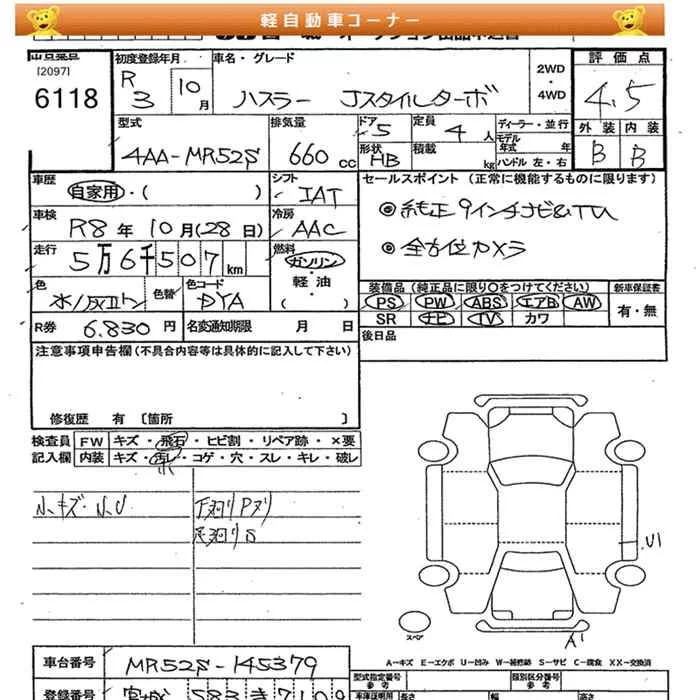 軽自動車コーナー
[2097]
6118
初度登録年月
R 3 10 月
車名・グレード
ハスラー Jスタイルターボ
2WD
・
4WD
評価点
4.5
外装 内装
B B
型式
4AA-MR52S
排気量
660 cc
ドア
5
定員
4 人
形状
HB
積載
kg
ディーラー・並行
モデル年式 年
ハンドル 左・右
車歴
自家用・( )
シフト
IAT
セールスポイント (正常に機能するものに限ります)
◎純正9インチナビ&TV
◎全方位カメラ
車検
R8 年 10 月(28 日)
冷房
AAC
走行
5万6千507 km
燃料
ガソリン
・
軽油
・
( )
色
色替
色コード
装備品 (純正品に限り○をつけてください)
新車保証書
PS PW ABS エアB AW
有・無
SR ナビ TV カワ
R券 6.830 円
名変通知期限 月 日
後日品
注意事項申告欄(不具合内容等は具体的に記入して下さい)
修復歴 有 [箇所 ]
検査員
記入欄
FW キズ・飛石・ヒビ割・リペア跡・×要
内装 キズ・汚レ・コゲ・穴・スレ・キレ・破レ
小キズ・小U
下廻りPヌリ
足廻りS
U1
スペア
A1
A-キズ E-エクボ U-凹み W-補修跡 S-サビ C-腐食 XX-交換済
車台番号
MR52S-145379
登録番号
宮城 583 き 7109
型式指定番号
参考
類別区分番号
参考
車庫証明用
参考
長さ
幅
高さ